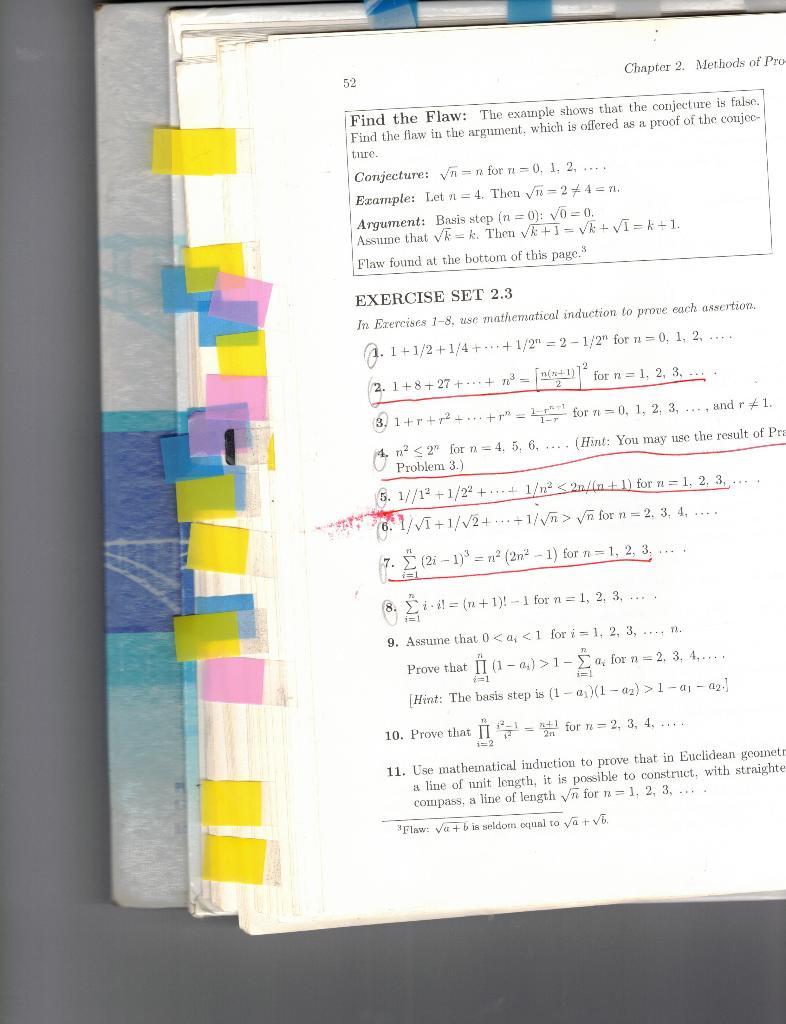 52
Chapter 2. Methods of
Find the Flaw: The example shows that the conjecture is false.
Find the flaw in the argument, which is offered as a proof of the conjec-
ture.
Conjecture: √n = n for n = 0, 1, 2, ... .
Example: Let n = 4. Then √n = 2 ≠ 4 = n.
Argument: Basis step (n = 0): √0 = 0.
Assume that √k = k. Then √(k + 1) = √k + √1 = k + 1.
Flaw found at the bottom of this page.³
EXERCISE SET 2.3
In Exercises 1–8, use mathematical induction to prove each assertion.
1. 1 + 1/2 + 1/4 + ··· + 1/2ⁿ = 2 − 1/2ⁿ for n = 0, 1, 2, ... .
2. 1 + 8 + 27 + ··· + n³ = [n(n+1)/2]² for n = 1, 2, 3, ... .
3. 1 + r + r² + ··· + rⁿ = (1−rⁿ⁺¹)/(1−r) for n = 0, 1, 2, 3, ..., and r ≠ 1.
4. n² ≤ 2ⁿ for n = 4, 5, 6, ... . (Hint: You may use the result of
Problem 3.)
5. 1//1² + 1/2² + ··· + 1/n² ≤ 2n/(n + 1) for n = 1, 2, 3, ... .
6. 1/√1 + 1/√2 + ··· + 1/√n > √n for n = 2, 3, 4, ... .
7. ∑ᵢ₌₁ⁿ (2i − 1)³ = n² (2n² − 1) for n = 1, 2, 3, ... .
8. ∑ᵢ₌₁ⁿ i · i! = (n + 1)! − 1 for n = 1, 2, 3, ... .
9. Assume that 0 < aᵢ < 1 for i = 1, 2, 3, ..., n.
Prove that ∏ᵢ₌₁ⁿ (1 − aᵢ) > 1 − ∑ᵢ₌₁ⁿ aᵢ for n = 2, 3, 4, ... .
[Hint: The basis step is (1 − a₁)(1 − a₂) > 1 − a₁ − a₂.]
10. Prove that ∏ᵢ₌₂ⁿ (i²−1)/i² = (n+1)/2n for n = 2, 3, 4, ... .
11. Use mathematical induction to prove that in Euclidean
a line of unit length, it is possible to construct, with
compass, a line of length √n for n = 1, 2, 3, ... .
³Flaw: √(a + b) is seldom equal to √a + √b.